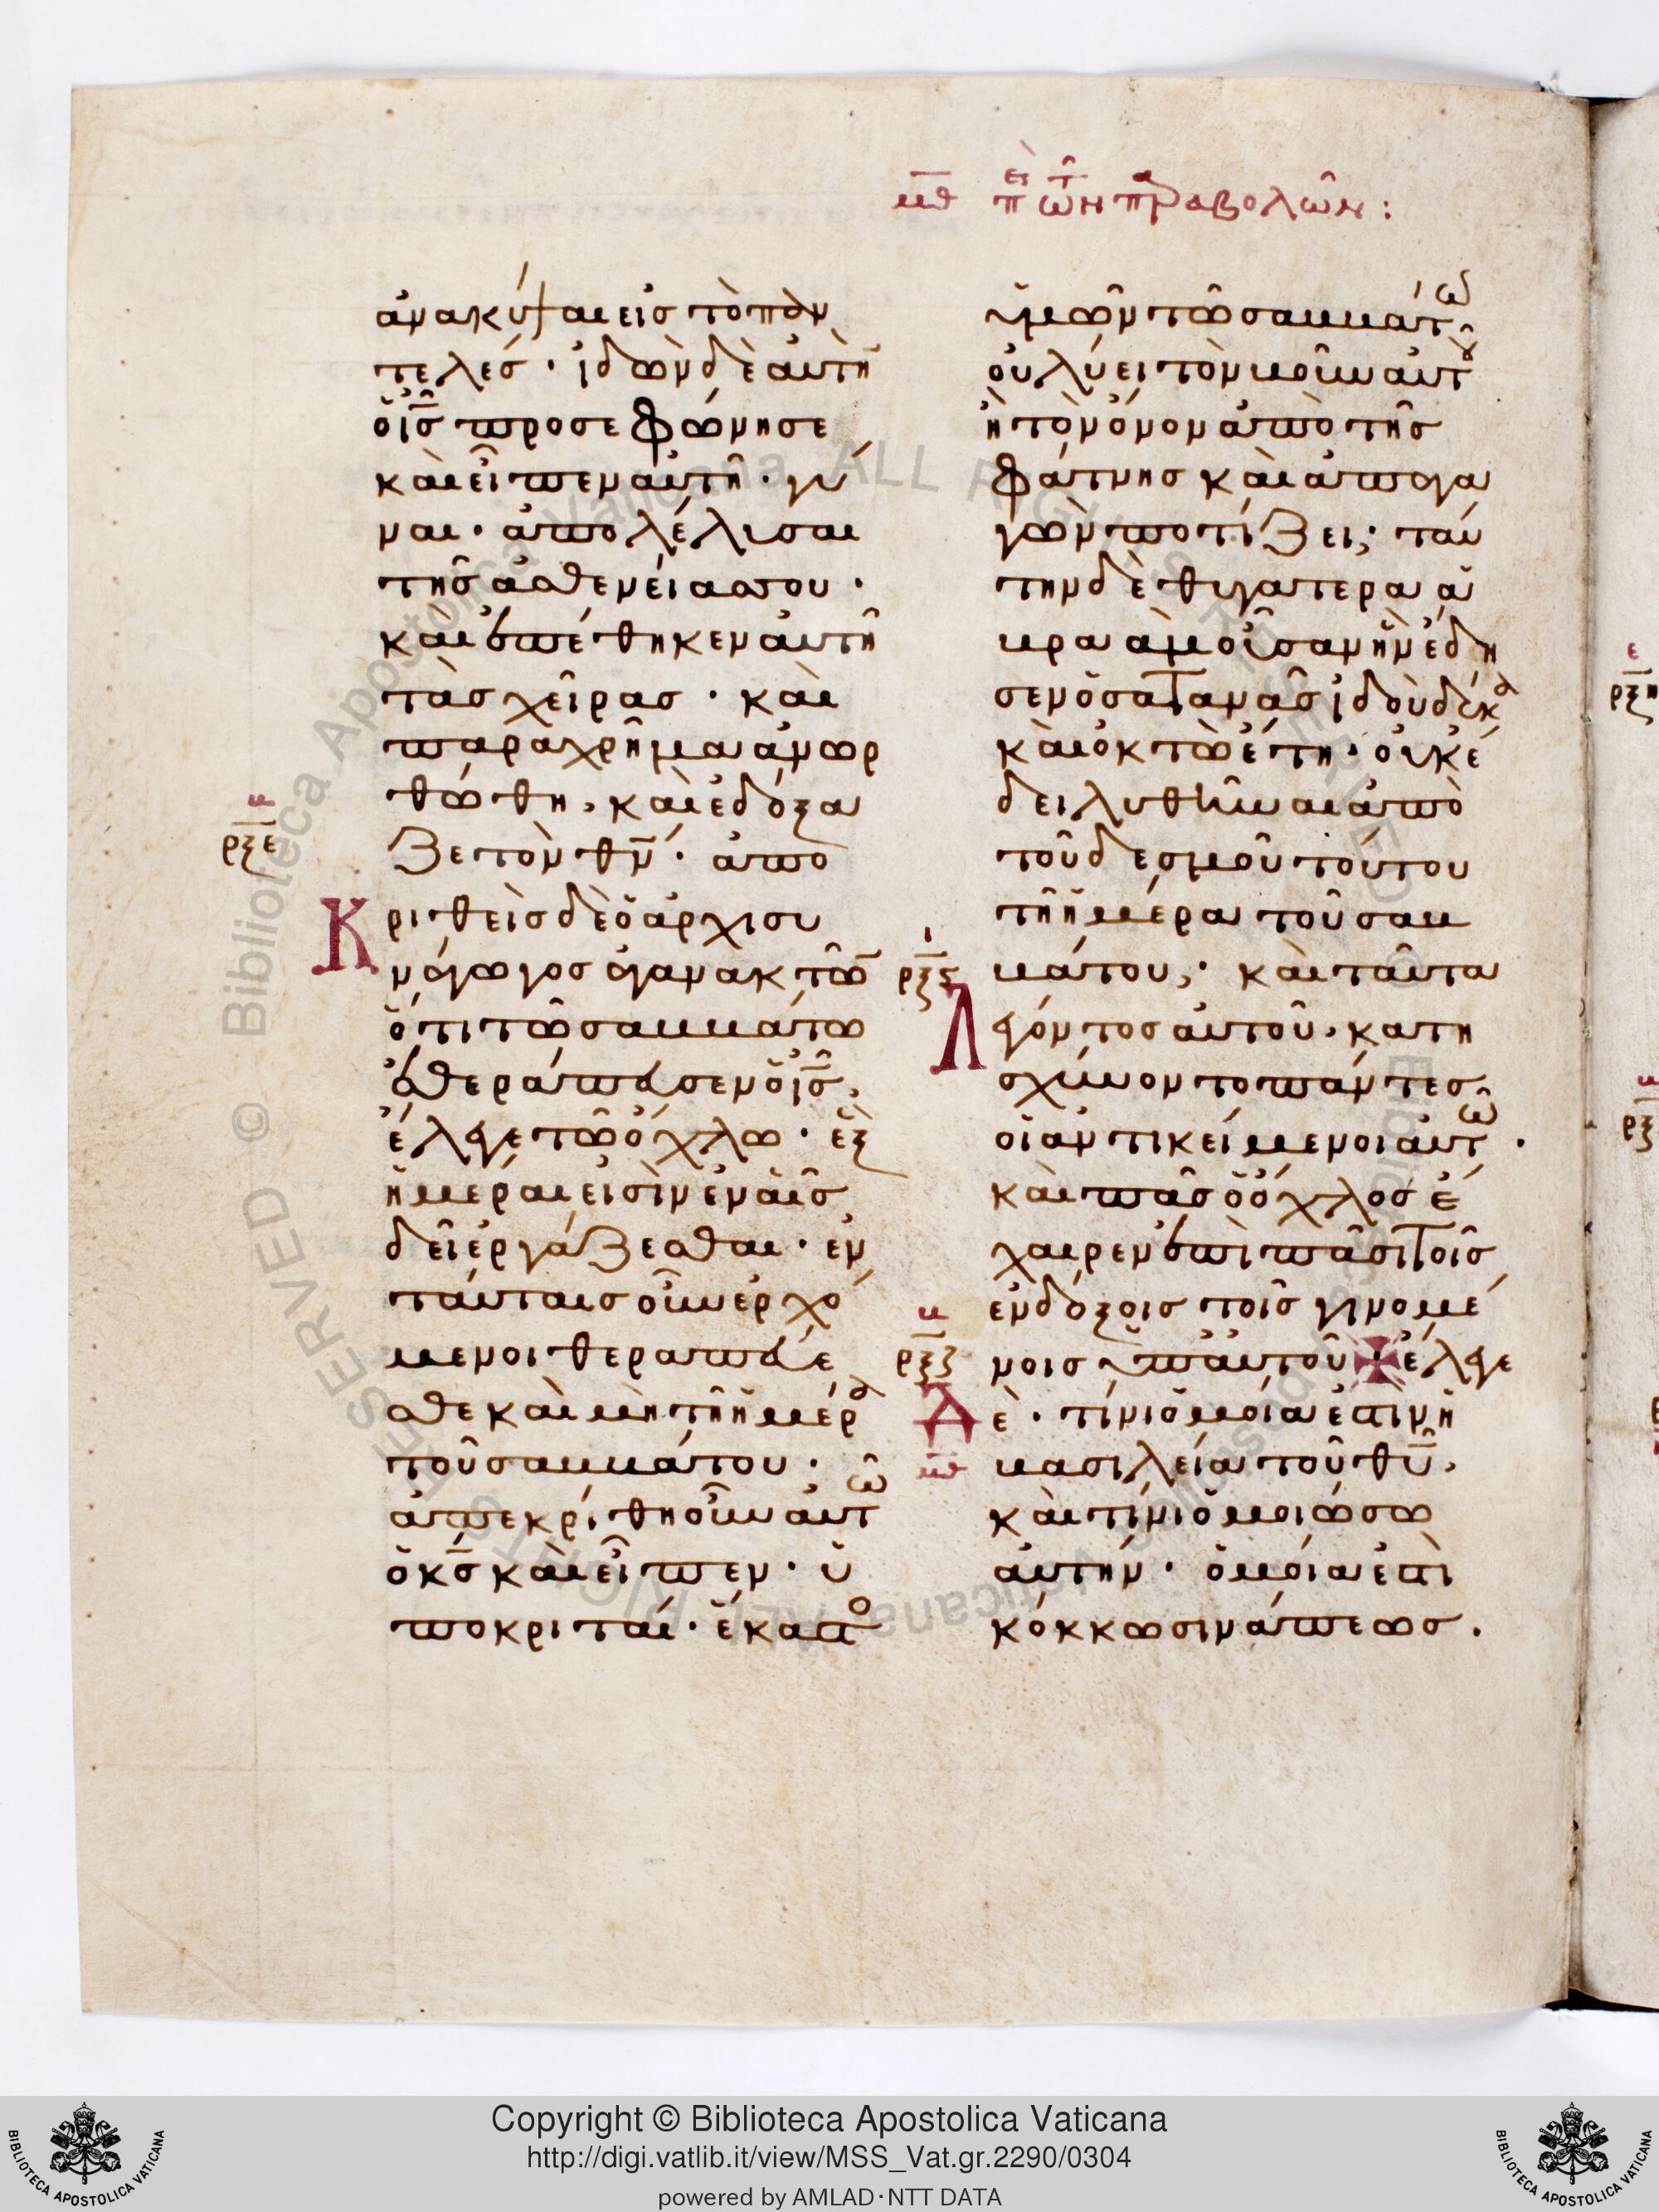 μθ περὶ τῶν παραβολῶν:
ἀνακύψαι εἰς τὸ παν
τελές · ἰδὼν δὲ αὐτὴν
ὁ ις προσεφώνησε
καὶ εἶπεν αὐτῆ · γύ
ναι · ἀπολέλυσαι
τῆς ἀσθενείας σου ·
καὶ ἐπέθηκεν αὐτῆ
τὰς χεῖρας · καὶ
παραχρῆμα ἀνωρ
θώθη, καὶ ἐδόξα
ρξε
ζε τὸν θν · ἀπο
Κριθεὶς δὲ ὁ ἀρχισυ
νάγωγος ἀγανακτῶν
ὅτι τῶ σαββάτω
ἐθεράπευσεν ὁ ις,
ἔλεγε τῶ ὄχλω · ἓξ
ἡμέραι εἰσὶν ἐν αἷς
δεῖ ἐργάζεσθαι · ἐν
ταύταις οὖν ἐρχό
μενοι θεραπεύε
σθε καὶ μὴ τῆ ἡμέρα
τοῦ σαββάτου ·
ἀπεκρίθη οὖν αὐτῶ
ὁ κς καὶ εἶπεν · ὑ
ποκριταί · ἕκαστο
ὑμῶν τῶ σαββάτω
οὐ λύει τὸν βοῦν αὐτοῦ
ἢ τὸν ὄνον ἀπὸ τῆς
φάτνης καὶ ἀπαγα
γὼν ποτίζει; ταύ
την δὲ θυγατέρα ἀ
βραὰμ οὖσαν ἣν ἔδη
σεν ὁ σατανᾶς ἰδοὺ δέκα
καὶ ὀκτὼ ἔτη · οὐκ ἔ
δει λυθῆναι ἀπὸ
τοῦ δεσμοῦ τούτου
τῆ ἡμέρα τοῦ σαβ
ρξς
βάτου; · καὶ ταῦτα
Λέγοντος αὐτοῦ, κατη
σχύνοντο πάντες
οἱ ἀντικείμενοι αὐτῶ ·
καὶ πᾶς ὁ ὄχλος ἔ
χαιρεν ἐπὶ πᾶσι τοῖς
ἐνδόξοις τοῖς γινομέ
ρξζ
νοις ὑπ' αὐτοῦ · ἔλεγε
Δὲ · τίνι ὁμοία ἐστὶν ἡ
μθ
βασιλεία τοῦ θυ,
καὶ τίνι ὁμοιώσω
αὐτήν · ὁμοία ἐστὶ
κόκκω σινάπεως .
ε
ρξη
Copyright © Biblioteca Apostolica Vaticana
http://digi.vatlib.it/view/MSS_Vat.gr.2290/0304
powered by AMLAD·NTT DATA
BIBLIOTECA APOSTOLICA VATICANA
BIBLIOTECA APOSTOLICA VATICANA